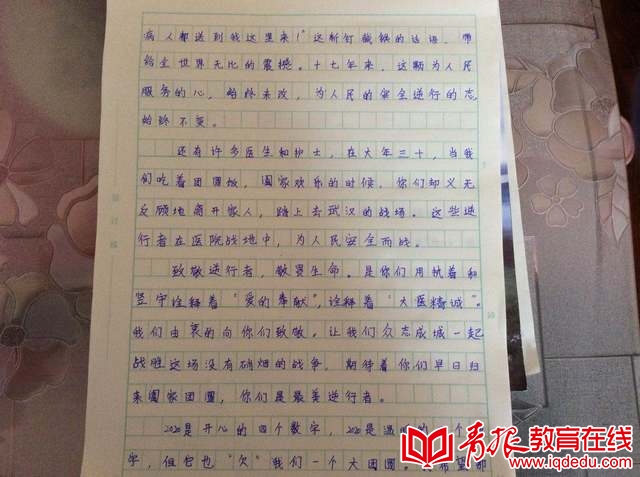 病人都送到我这里来！"这斩钉截铁的话语，带
给全世界无比的震撼。十七年来，这颗为人民
服务的心，始终未改，为人民的安全逆行的态，
始终不变。
还有许多医生和护士，在大年三十，当我
们吃着团圆饭，阖家欢乐的时候，你们却义无
反顾地离开家人，踏上去武汉的战场。这些逆
行者在医院战地中，为人民安全而战。
致敬逆行者，敬畏生命。是你们用执着和
坚守诠释着"爱的奉献"，诠释着"大医精诚"。
我们由衷的向你们致敬，让我们众志成城一起
战胜这场没有硝烟的战争。期待着你们早日归
来阖家团圆，你们是最美逆行者。
2020是开心的四个数字，2020是温
字，但它也"欠"我们一个大团圆。
青报教育在线
www.iqdedu.com